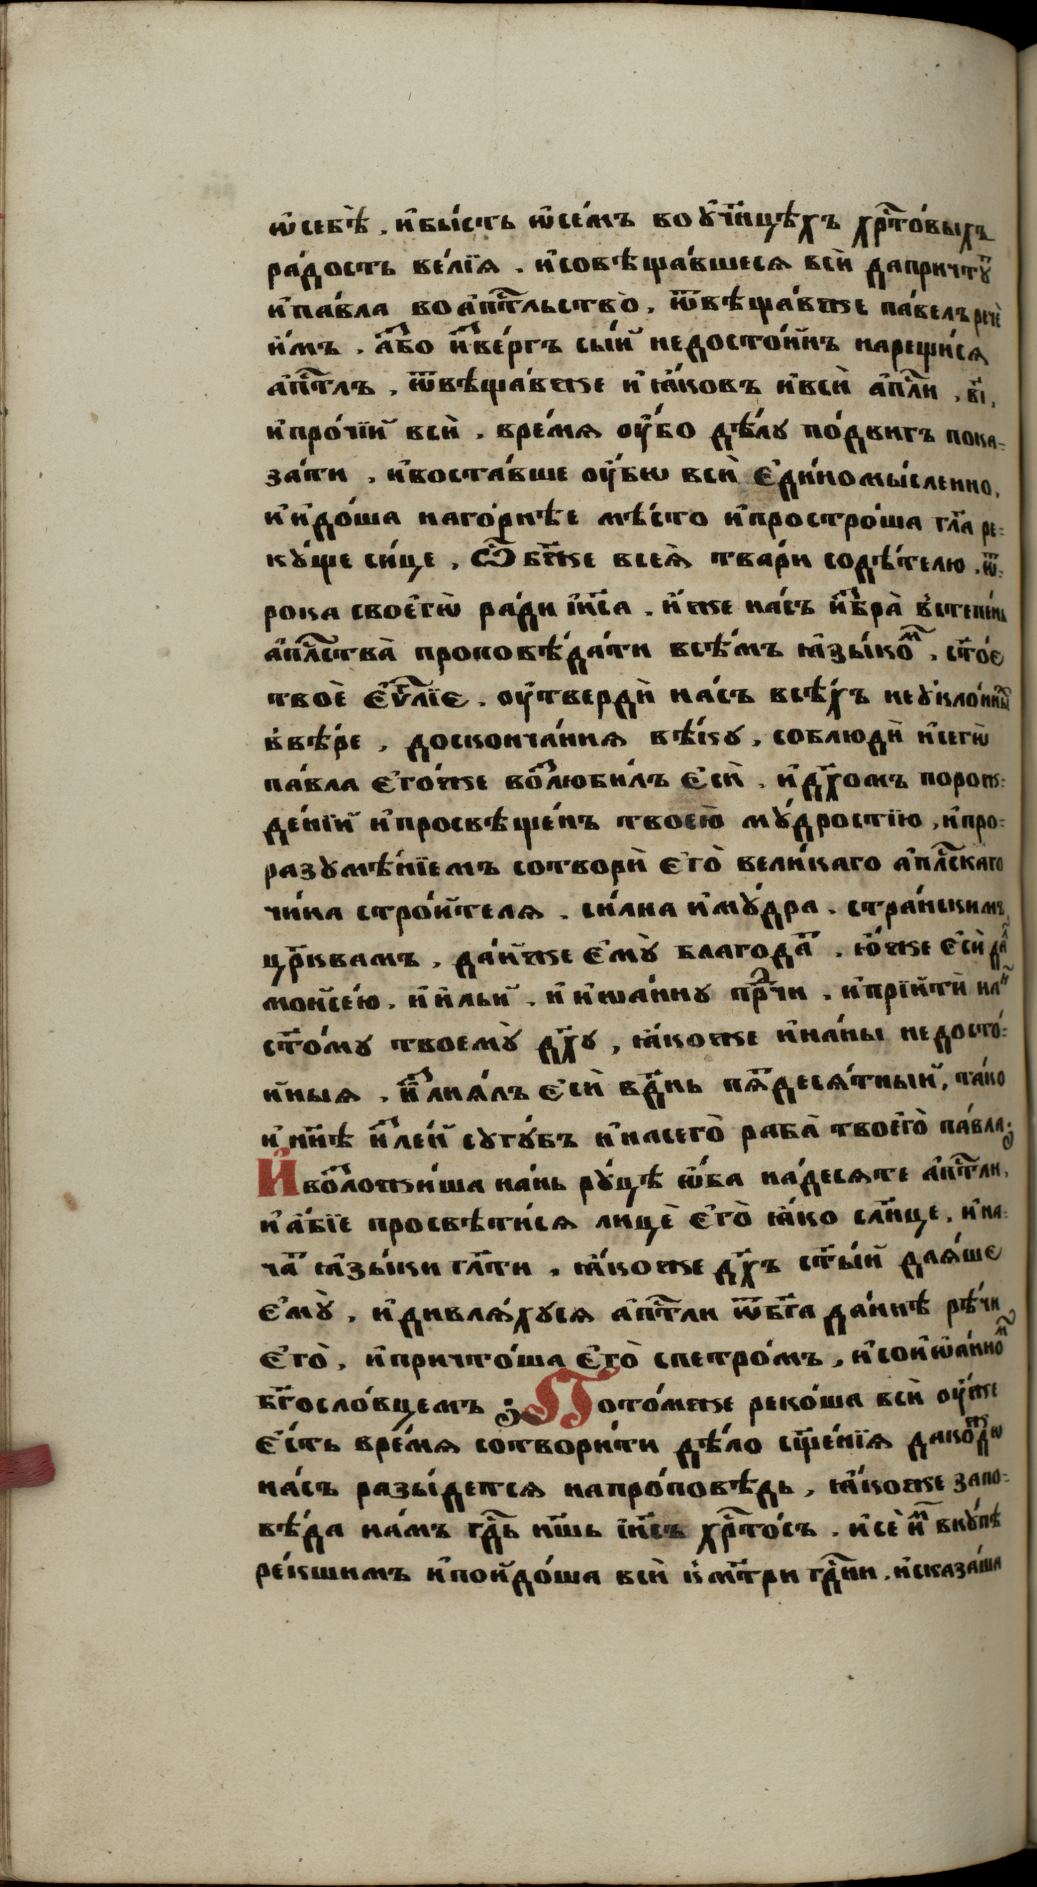 ѡ҆себѣ̀ . и҆бы́сть ѡ҆се́мъ во ᲂу҆чн҃цѣ́хъ хрⷭ҇то́выхъ
ра́дость ве́лїѧ . и҆совѣща́вшесѧ всѝ дапричту́тъ
и҆па́вла во а҆пⷭ҇тльство̀ . ѿвѣща́вже па́велъ речѐ
и҆́мъ . а҆́збо и҆́звергъ сы́й недосто́инъ нарещи́сѧ
а҆пⷭ҇тлъ , ѿвѣща́вже и҆ ꙗ҆́ковъ и҆всѝ а҆пⷭ҇ли , в҃і ,
и҆про́чїй всѝ . вре́мѧ ᲂу҆́бо дѣ́лу по́двигъ пока-
за́ти , и҆воста́вше ᲂу҆́бѡ всѝ є҆ди́номы́сленно ,
и҆ и҆до́ша наго́рнѣе мѣ́сто и҆простро́ша гла҃ ре-
ку́ще си́це , Ѽ бж҃е всеѧ̀ тва́ри содѣ́телю . ѿ-
рока своегѡ̀ ра́ди і҆и҃са . и҆́же на́съ и҆збра̀ встепе́нь
а҆пⷭ҇лства̀ проповѣ́дати всѣ́мъ ꙗ҆зы́комъ , ст҃о́е
твоѐ є҆ѵⷢ҇лїе . ᲂу҆твердѝ на́съ всѣ́хъ неукло́нны
ввѣ́ре , досконча́ниѧ вѣ́ку , соблюдѝ и҆сегѡ̀
па́вла є҆го́же возлюби́лъ є҆сѝ . и҆дх҃омъ порож-
де́нїй и҆просвѣще́нъ твоею̀ му́дростїю , и҆про-
разумѣ́нїемъ сотворѝ є҆го̀ вели́каго а҆пⷭ҇лскаго
чи́на строи́телѧ . си́лна и҆му́дра . стра́нскимъ
цр҃квамъ , да́йже є҆му̀ благода́ть . ю҆́же є҆сѝ да́лъ
моисе́ю . и҆ и҆льи́ . и҆ и҆ѡа́нну прⷣтчи . и҆прїитѝ на́нь
ст҃о́му твоему̀ дх҃у , ꙗ҆́коже и҆на́ны недосто́-
йныѧ . и҆злиѧ́лъ є҆сѝ вдн҃ь пѧ́тдесѧ́тный , та́ко
и҆ нн҃ѣ и҆зле́й сугу́бъ и҆насего̀ раба̀ твоего̀ па́вла .
И҆возложи́ша на́нь ру́цѣ ѡ҆́ба на́десѧте а҆пⷭ҇тли ,
и҆а҆́бїе просвѣти́сѧ лицѐ є҆го̀ ꙗ҆́ко слн҃це . и҆на-
ча́тъ ꙗ҆зы́ки гл҃ати . ꙗ҆́коже дх҃ъ ст҃ы́й даѧ́ше
є҆му̀ , и҆дивлѧ́хусѧ а҆пⷭ҇тли ѿбг҃а да́ннѣ рѣ́чи
є҆го̀ , и҆причто́ша є҆го̀ спетро́мъ , и҆сои҆ѡа́нномъ
бг҃осло́вцемъ ; Пото́мже реко́ша всѝ ᲂу҆́же
є҆́сть вре́мѧ сотвори́ти дѣ́ло сщ҃е́нїѧ дако́ждо
на́съ разы́детсѧ напро́повѣдь , ꙗ҆́коже запо-
вѣ́да на́мъ гдⷭ҇ь н҃шь і҆и҃съ хрⷭ҇то́съ . и҆сѐ и҆́мъ вку́пѣ
ре́кшимъ и҆пойдо́ша всѝ км҃три гдⷭ҇ни . и҆сказа́ша